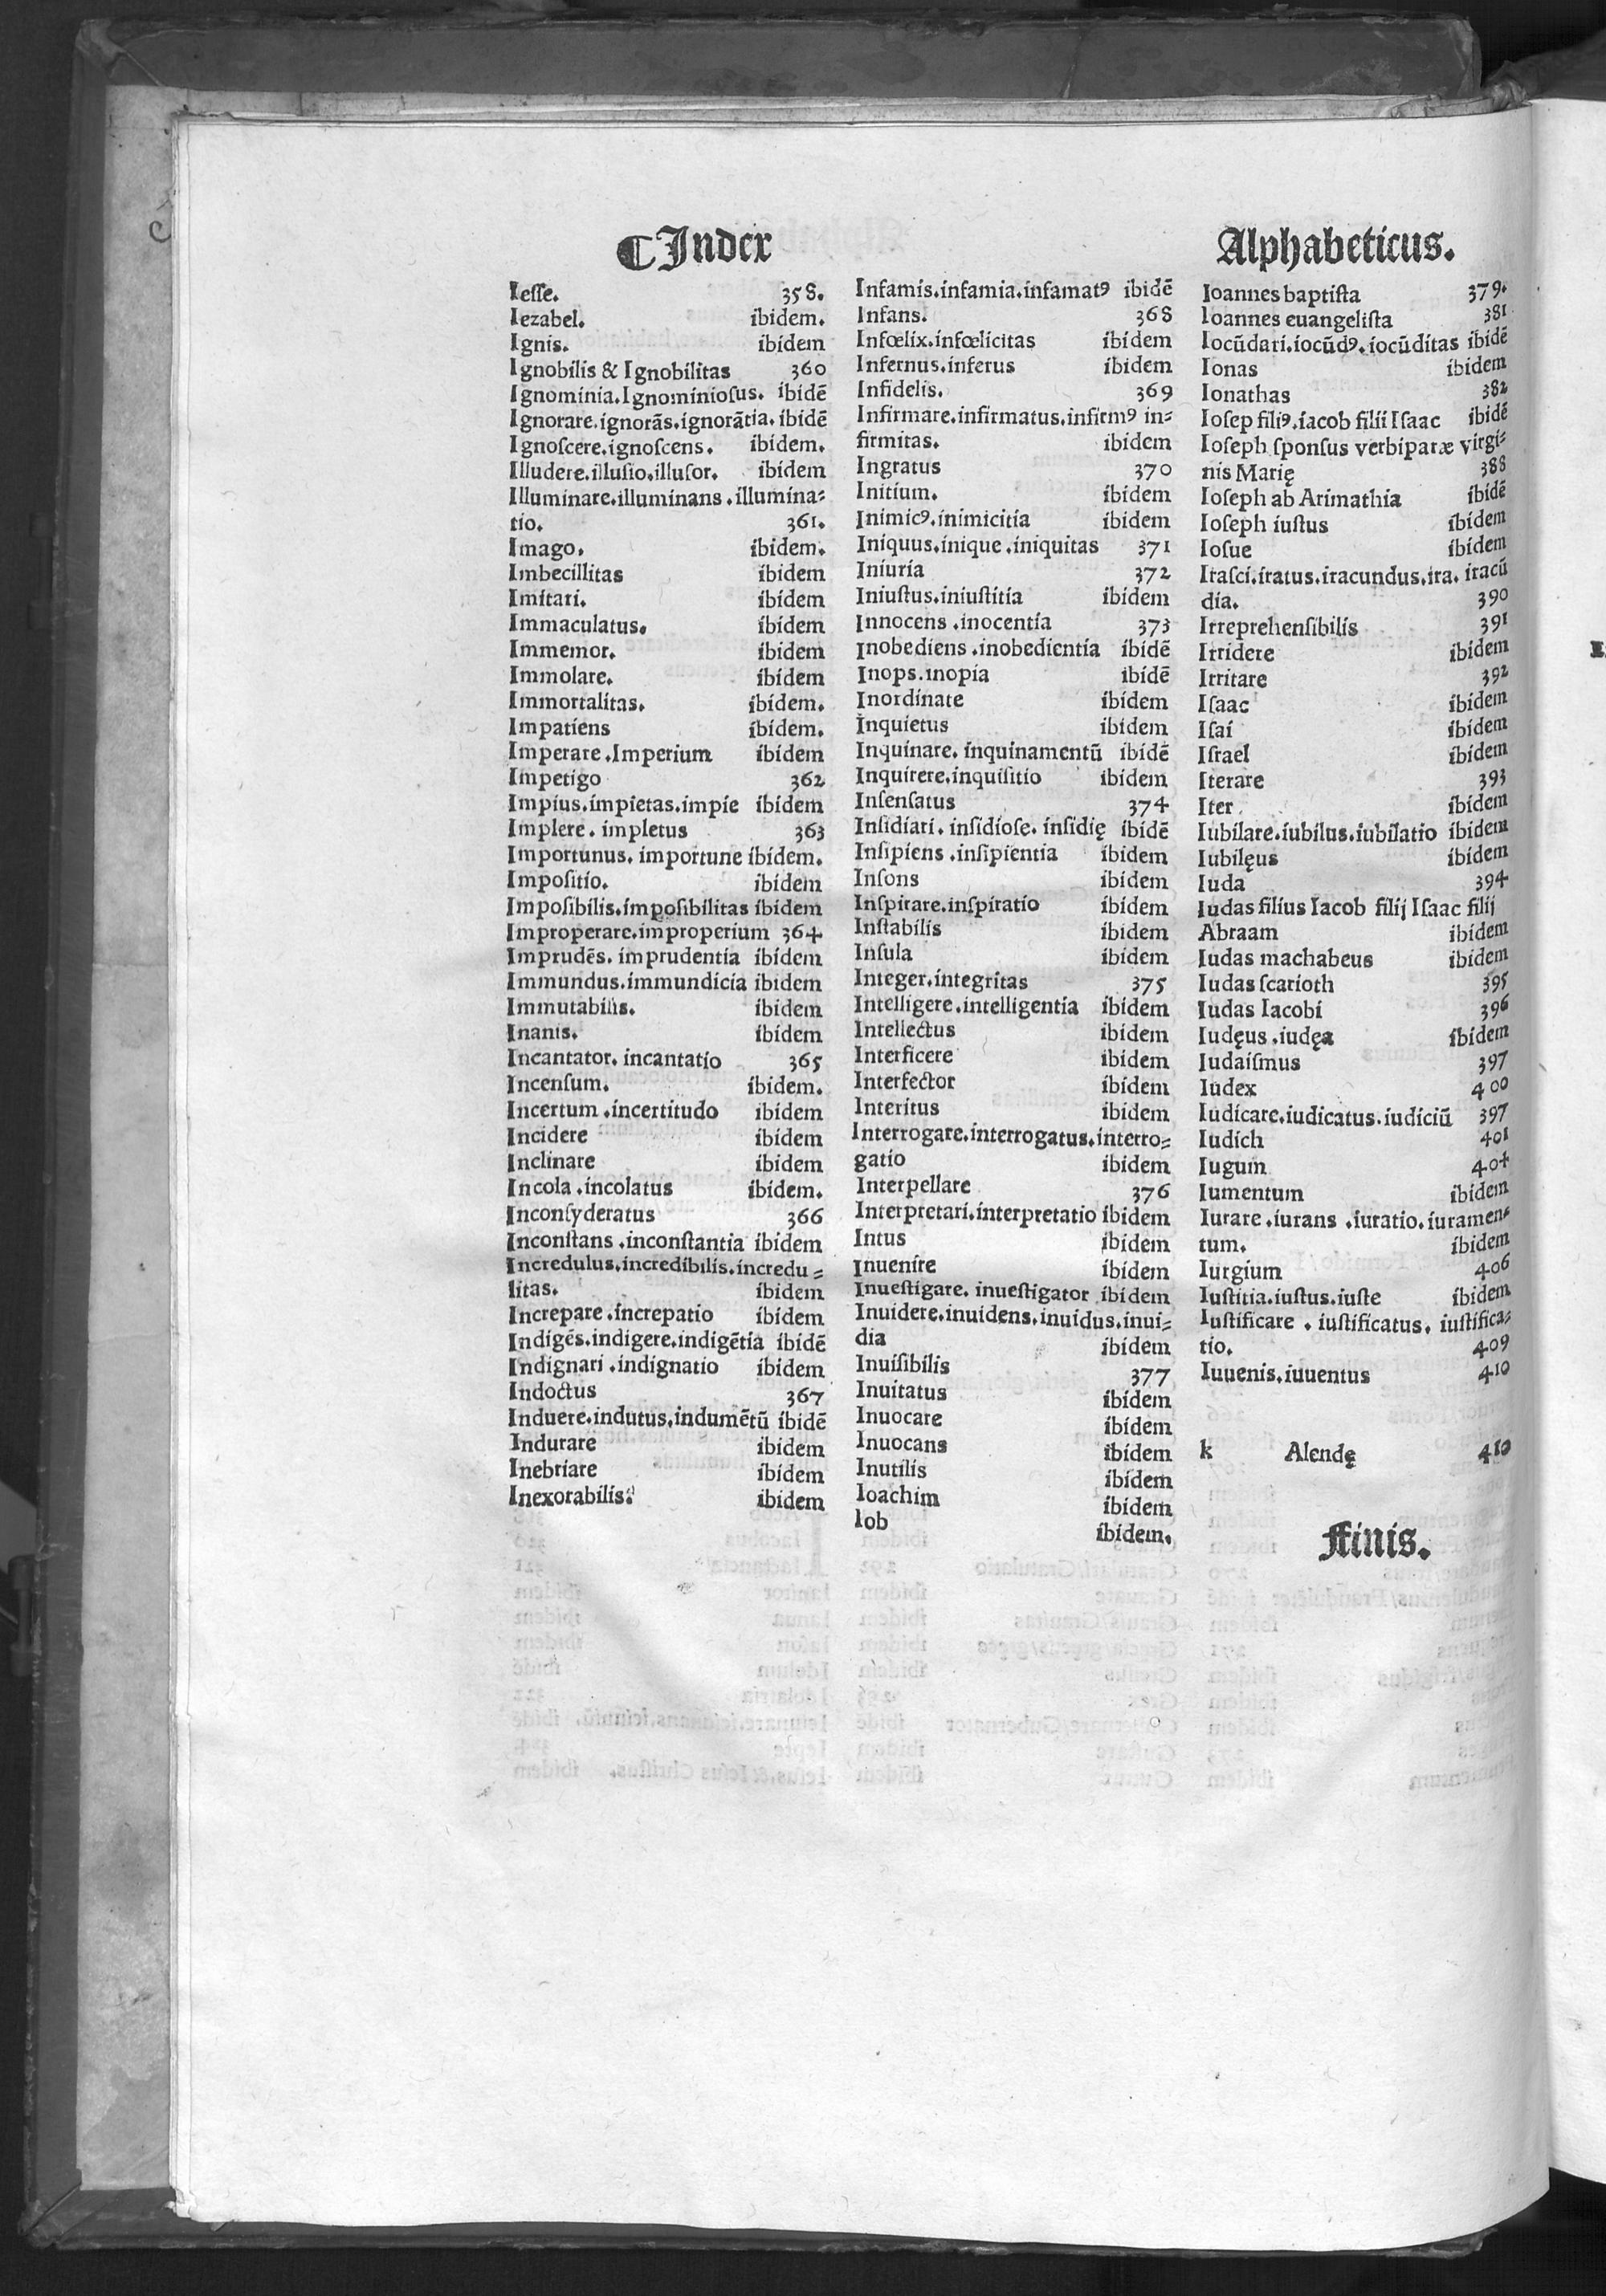 ¶ Index Alphabeticus.
Iesse. 358.
Iezabel. ibidem.
Ignis. ibidem
Ignobilis & Ignobilitas 360
Ignominia.Ignominiosus. ibidē
Ignorare.ignorās.ignorātia. ibidē
Ignoscere.ignoscens. ibidem.
Illudere.illusio.illusor. ibidem
Illuminare.illuminans.illumina-
tio. 361.
Imago. ibidem.
Imbecillitas ibidem
Imitari. ibidem
Immaculatus. ibidem
Immemor. ibidem
Immolare. ibidem
Immortalitas. ibidem.
Impatiens ibidem.
Imperare.Imperium ibidem
Impetigo 362
Impius.impietas.impie ibidem
Implere. impletus 363
Importunus. importune ibidem.
Impositio. ibidem
Imposibilis.imposibilitas ibidem
Improperare.improperium 364
Imprudēs. imprudentia ibidem
Immundus.immundicia ibidem
Immutabilis. ibidem
Inanis. ibidem
Incantator. incantatio 365
Incensum. ibidem.
Incertum.incertitudo ibidem
Incidere ibidem
Inclinare ibidem
Incola.incolatus ibidem.
Inconsyderatus 366
Inconstans.inconstantia ibidem
Incredulus.incredibilis.incredu-
litas. ibidem
Increpare.increpatio ibidem
Indigēs.indigere.indigētia ibidē
Indignari.indignatio ibidem
Indoctus 367
Induere.indutus.indumētū ibidē
Indurare ibidem
Inebriare ibidem
Inexorabilis. ibidem
Infamis.infamia.infamatꝰ ibidē
Infans. 368
Infœlix.infœlicitas ibidem
Infernus.inferus ibidem
Infidelis. 369
Infirmare.infirmatus.infirmꝰ in-
firmitas. ibidem
Ingratus 370
Initium. ibidem
Inimicꝰ.inimicitia ibidem
Iniquus.inique.iniquitas 371
Iniuria 372
Iniustus.iniustitia ibidem
Innocens.inocentia 373
Inobediens.inobedientia ibidē
Inops.inopia ibidē
Inordinate ibidem
Inquietus ibidem
Inquinare. inquinamentū ibidē
Inquirere.inquisitio ibidem
Insensatus 374
Insidiari. insidiose. insidię ibidē
Insipiens.insipientia ibidem
Insons ibidem
Inspirare.inspiratio ibidem
Instabilis ibidem
Insula ibidem
Integer.integritas 375
Intelligere.intelligentia ibidem
Intellectus ibidem
Interficere ibidem
Interfector ibidem
Interitus ibidem
Interrogare.interrogatus.interro-
gatio ibidem
Interpellare 376
Interpretari.interpretatio ibidem
Intus ibidem
Inuenire ibidem
Inuestigare. inuestigator ibidem
Inuidere.inuidens.inuidus.inui-
dia ibidem
Inuisibilis 377
Inuitatus ibidem
Inuocare ibidem
Inuocans ibidem
Inutilis ibidem
Ioachim ibidem
Iob ibidem.
Ioannes baptista 379.
Ioannes euangelista 381
Iocūdari.iocūdꝰ.iocūditas ibidē
Ionas ibidem
Ionathas 382
Iosep filiꝰ.iacob filii Isaac ibidē
Ioseph sponsus verbiparæ virgi-
nis Marię 388
Ioseph ab Arimathia ibidē
Ioseph iustus ibidem
Iosue ibidem
Irasci.iratus.iracundus.ira. iracū
dia. 390
Irreprehensibilis 391
Irridere ibidem
Irritare 392
Isaac ibidem
Isai ibidem
Israel ibidem
Iterare 393
Iter ibidem
Iubilare.iubilus.iubilatio ibidem
Iubilęus ibidem
Iuda 394
Iudas filius Iacob filij Isaac filij
Abraam ibidem
Iudas machabeus ibidem
Iudas scarioth 395
Iudas Iacobi 396
Iudęus.iudęa ibidem
Iudaismus 397
Iudex 400
Iudicare.iudicatus.iudiciū 397
Iudich 401
Iugum 404
Iumentum ibidem
Iurare.iurans.iuratio.iuramen-
tum. ibidem
Iurgium 406
Iustitia.iustus.iuste ibidem
Iustificare. iustificatus. iustifica-
tio. 409
Iuuenis.iuuentus 410
k Alendę 410
Finis.